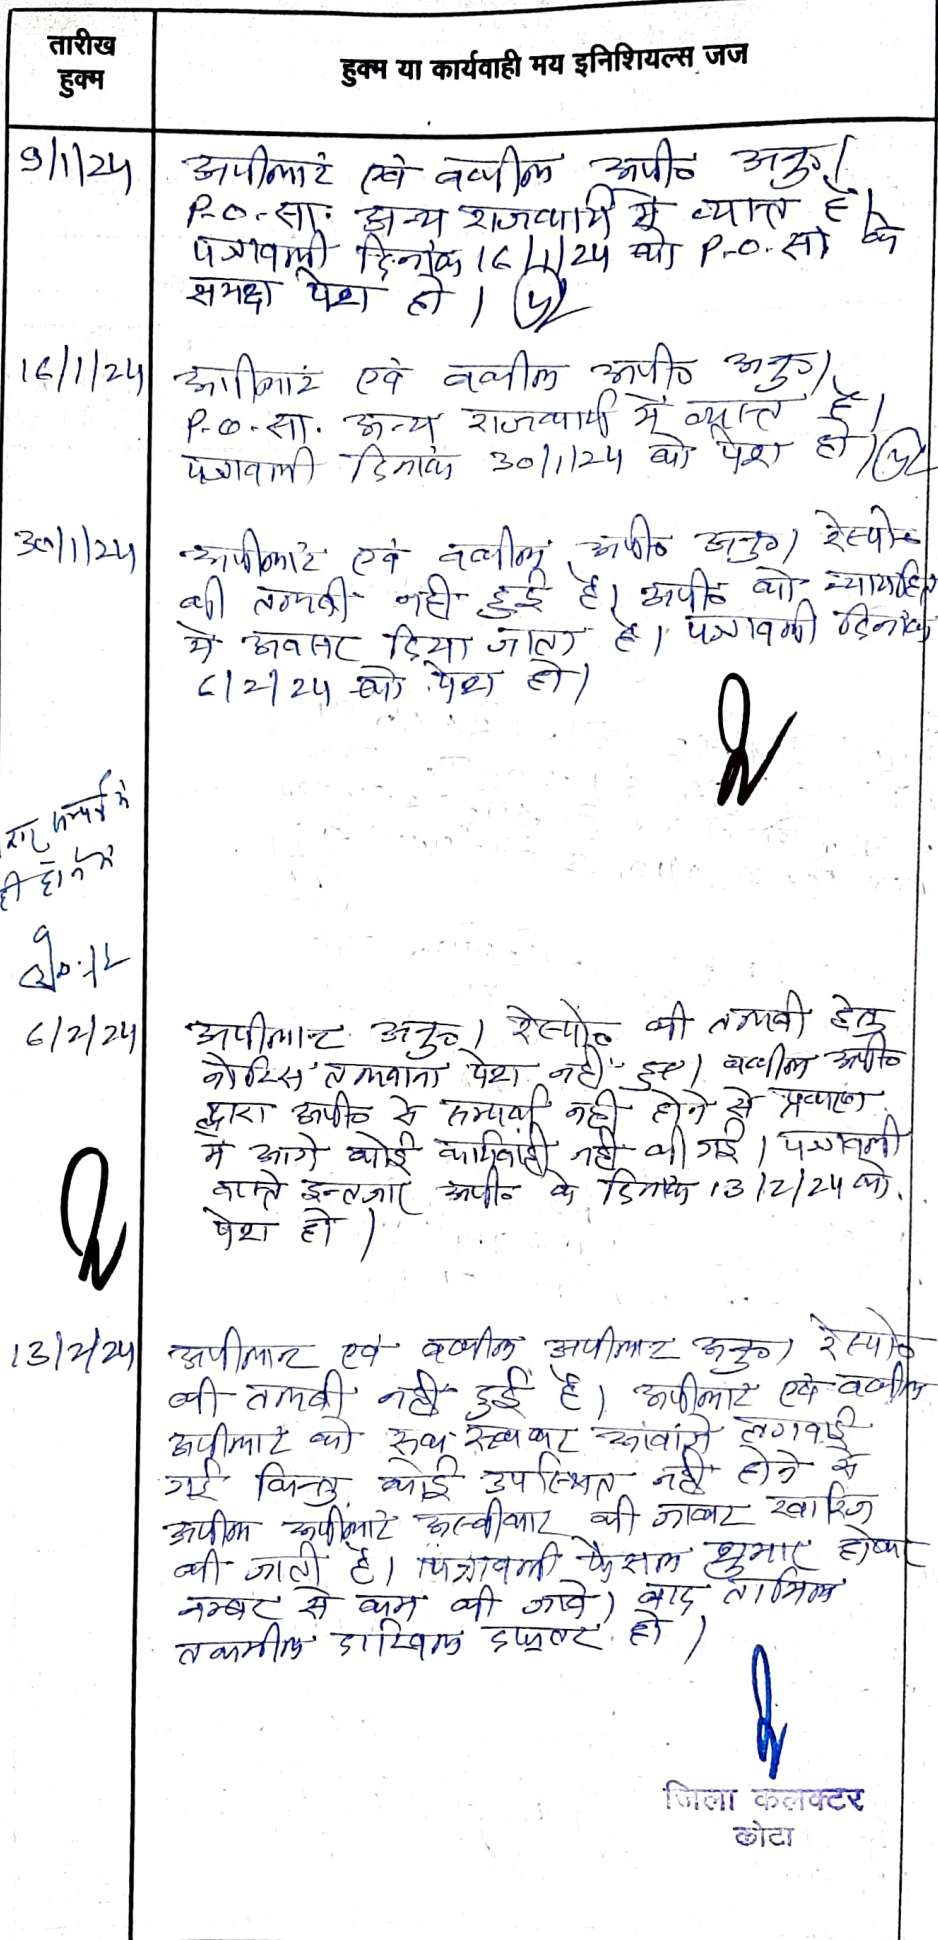 तारीख
हुक्म
हुक्म या कार्यवाही मय इनिशियल्स जज
9/1/24
अपीलांट एवं वकील अपी० अनु०।
P.O. सा. अन्य राजकार्य में व्यस्त है।
पत्रावली दिनांक 16/1/24 को P.O. सा० के
समक्ष पेश हो।
16/1/24
अपीलांट एवं वकील अपी० अनु०।
P.O. सा. अन्य राजकार्य में व्यस्त है।
पत्रावली दिनांक 30/1/24 को पेश हो।
30/1/24
अपीलांट एवं वकील अपी० अनु०। रेस्पो०
की तलबी नहीं हुई है। अपी० को न्यायहित
में अवसर दिया जाता है। पत्रावली दिनांक
6/2/24 को पेश हो।
सम्पर्क में
ही होने से
6/2/24
अपीलान्ट अनु०। रेस्पो० की तलबी हेतु
नोटिस तलवाना पेश नहीं हुए। वकील अपी०
द्वारा अपी० से सम्पर्क नहीं होने से प्रकरण
में आगे कोई कार्यवाही नहीं की गई। पत्रावली
वास्ते इन्तजार अपी० के दिनांक 13/2/24 को
पेश हो।
13/2/24
अपीलान्ट एवं वकील अपीलांट अनु०। रेस्पो०
की तलबी नहीं हुई है। अपीलांट एवं वकील
अपीलांट को रूक रूककर आवाजें लगवाई
गई किन्तु कोई उपस्थित नहीं होने से
अपील अपीलांट अस्वीकार की जाकर खारिज
की जाती है। पत्रावली फैसल शुमार होकर
नम्बर से कम की जावे। बाद तामिल
तकमील दाखिल दफ्तर हो।
जिला कलक्टर
कोटा